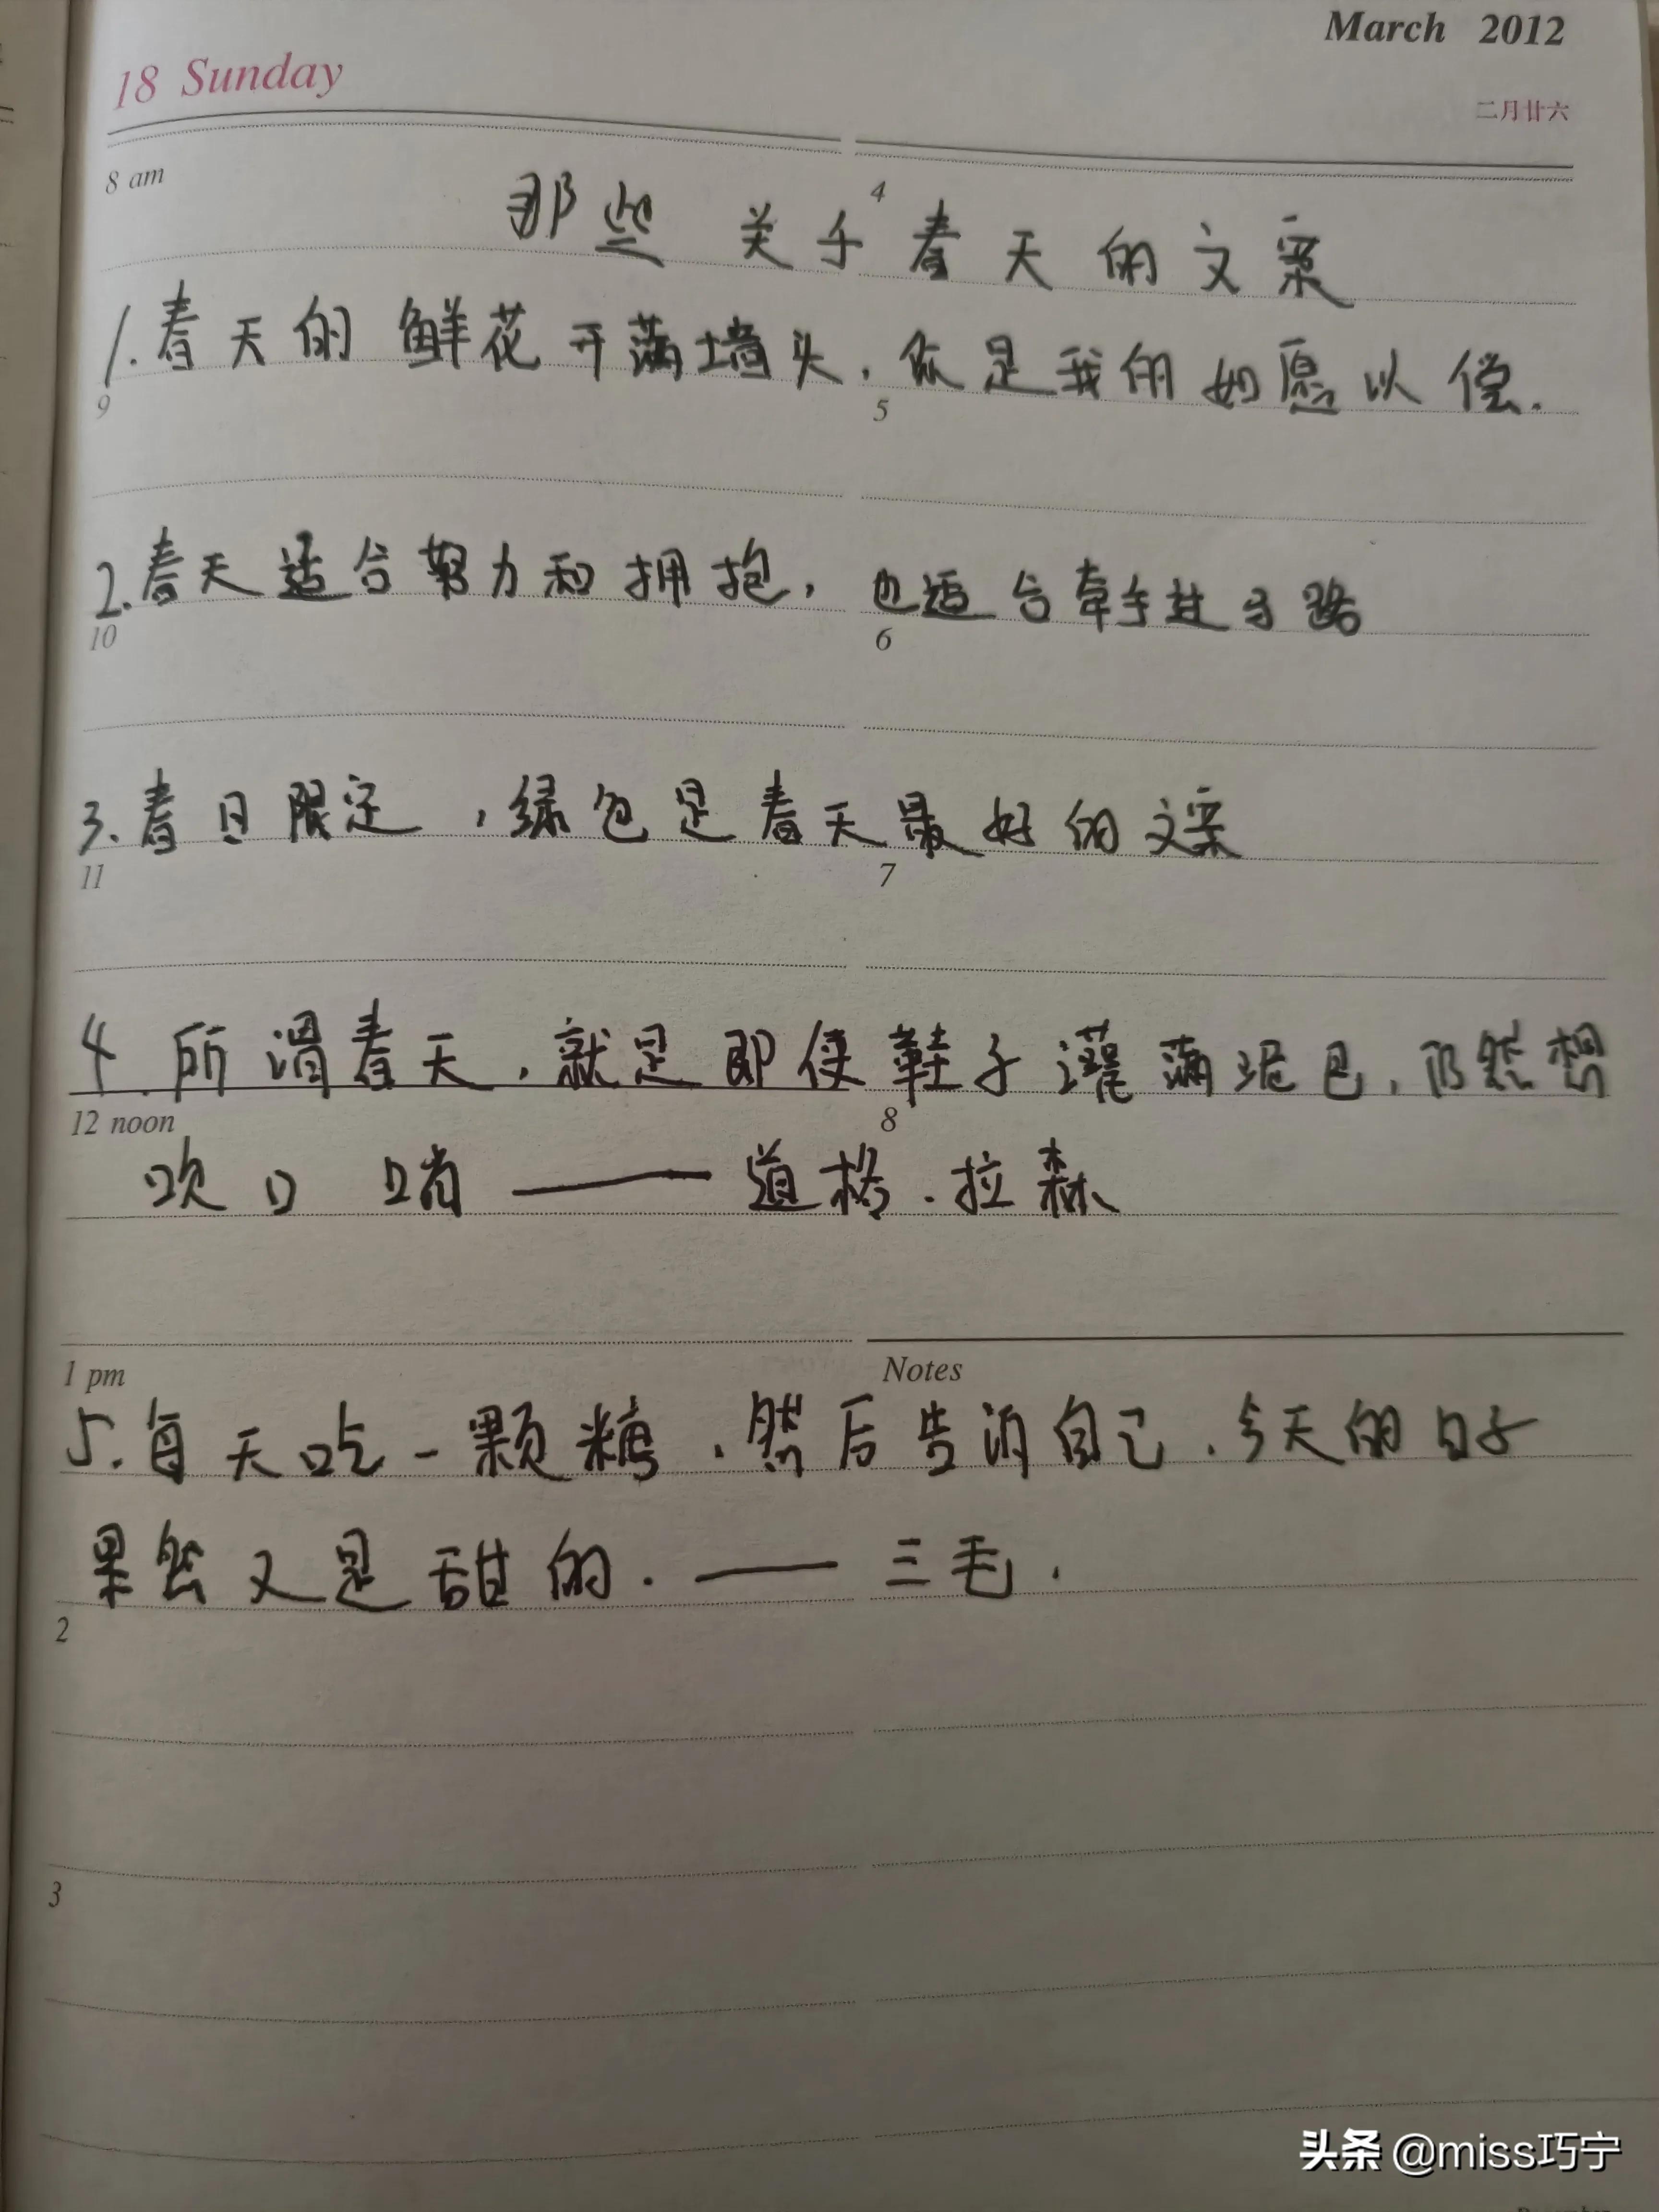 March 2012
18 Sunday
二月廿六
8 am
4
那些关于春天的文案
1.春天的鲜花开满墙头，你是我的如愿以偿.
9
5
2.春天适合努力和拥抱，也适合牵手过马路
10
6
3.春日限定，绿色是春天最好的文案
11
7
4.所谓春天，就是即使鞋子灌满泥巴，仍然想
12 noon
8
吹口哨——道格.拉森
1 pm
Notes
5.每天吃一颗糖，然后告诉自己，今天的日子
果然又是甜的.——三毛.
2
3
头条 @miss巧宁